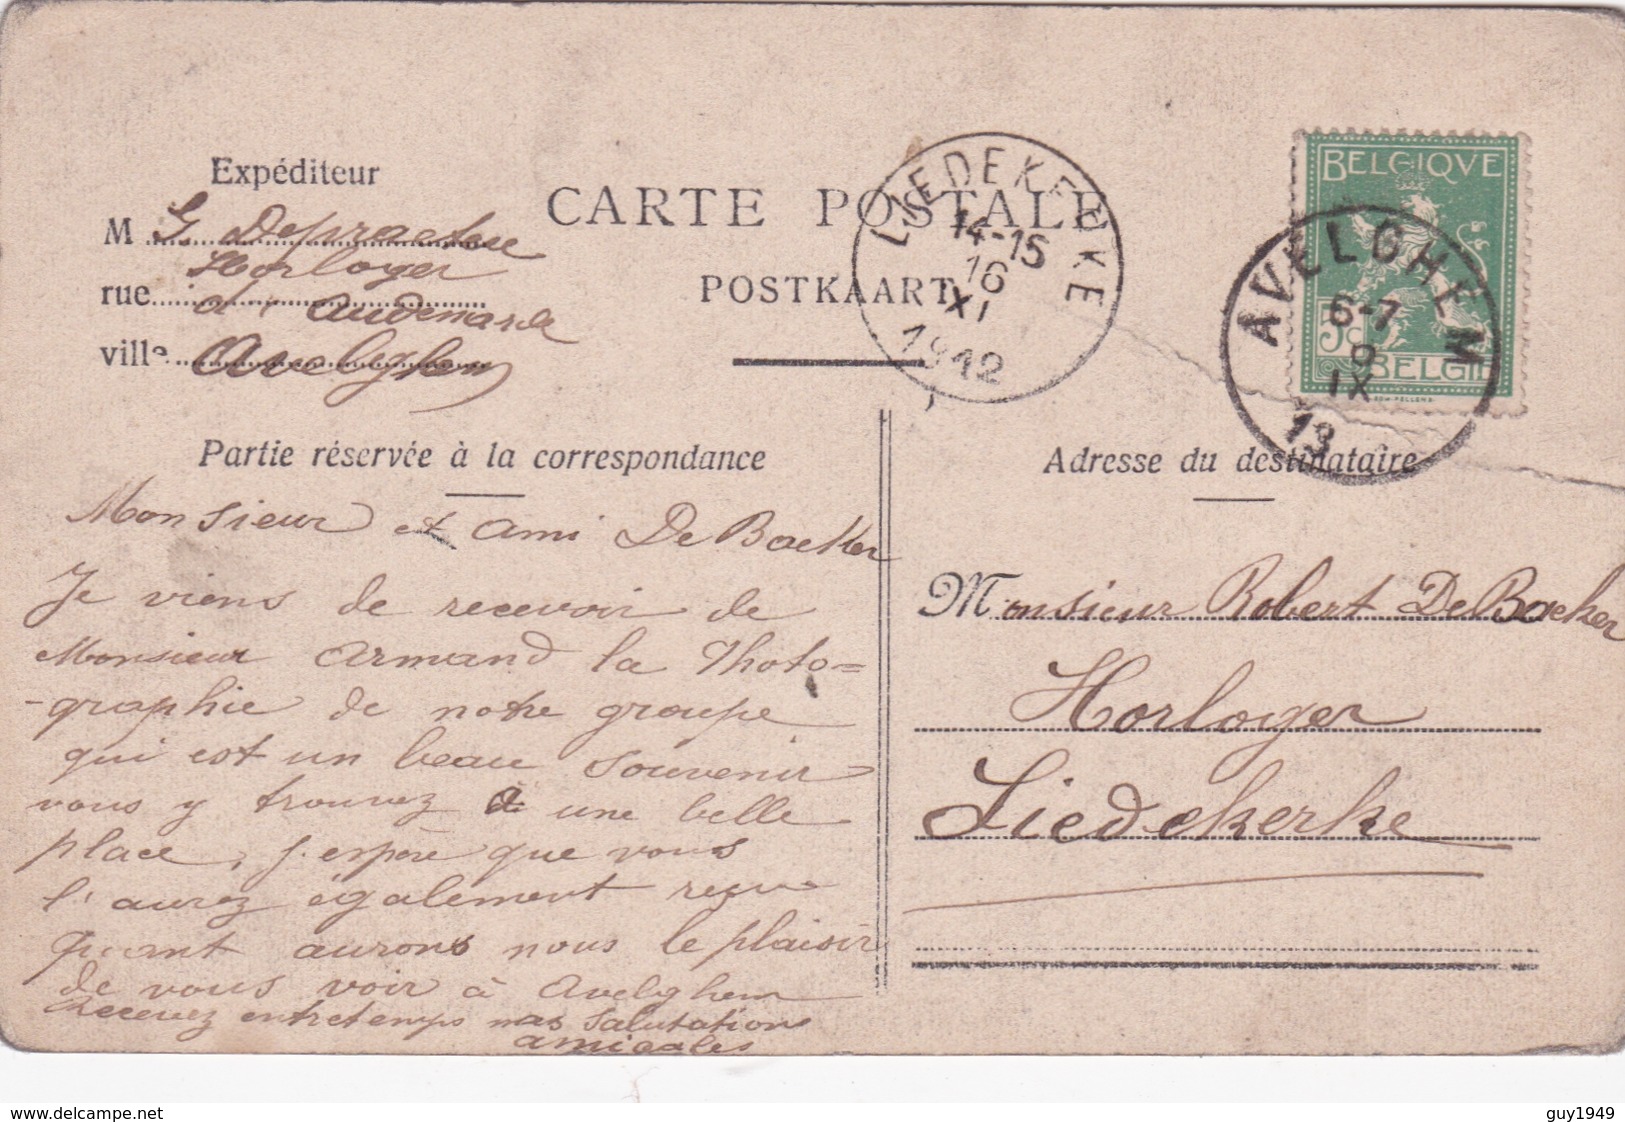 Expéditeur
M G. Depraetere
Horloger
rue d'Audenarde
ville Avelghem
CARTE POSTALE
POSTKAART
LIEDEKERKE
14-15
16
XI
1912
BELGIQUE
5c
BELGIE
AVELGHEM
6-7
9
IX
13
Partie réservée à la correspondance
Monsieur et ami De Backer
Je viens de recevoir de
Monsieur Armand la Photo=
-graphie de notre groupe
qui est un beau souvenir
vous y trouvez une belle
place, j'espère que vous
l'aurez également reçue
Quant aurons nous le plaisir
de vous voir à Avelghem
Recevez entretemps mes salutations
amicales
Adresse du destinataire
Monsieur Robert De Backer
Horloger
Liedekerke
www.delcampe.net
guy1949